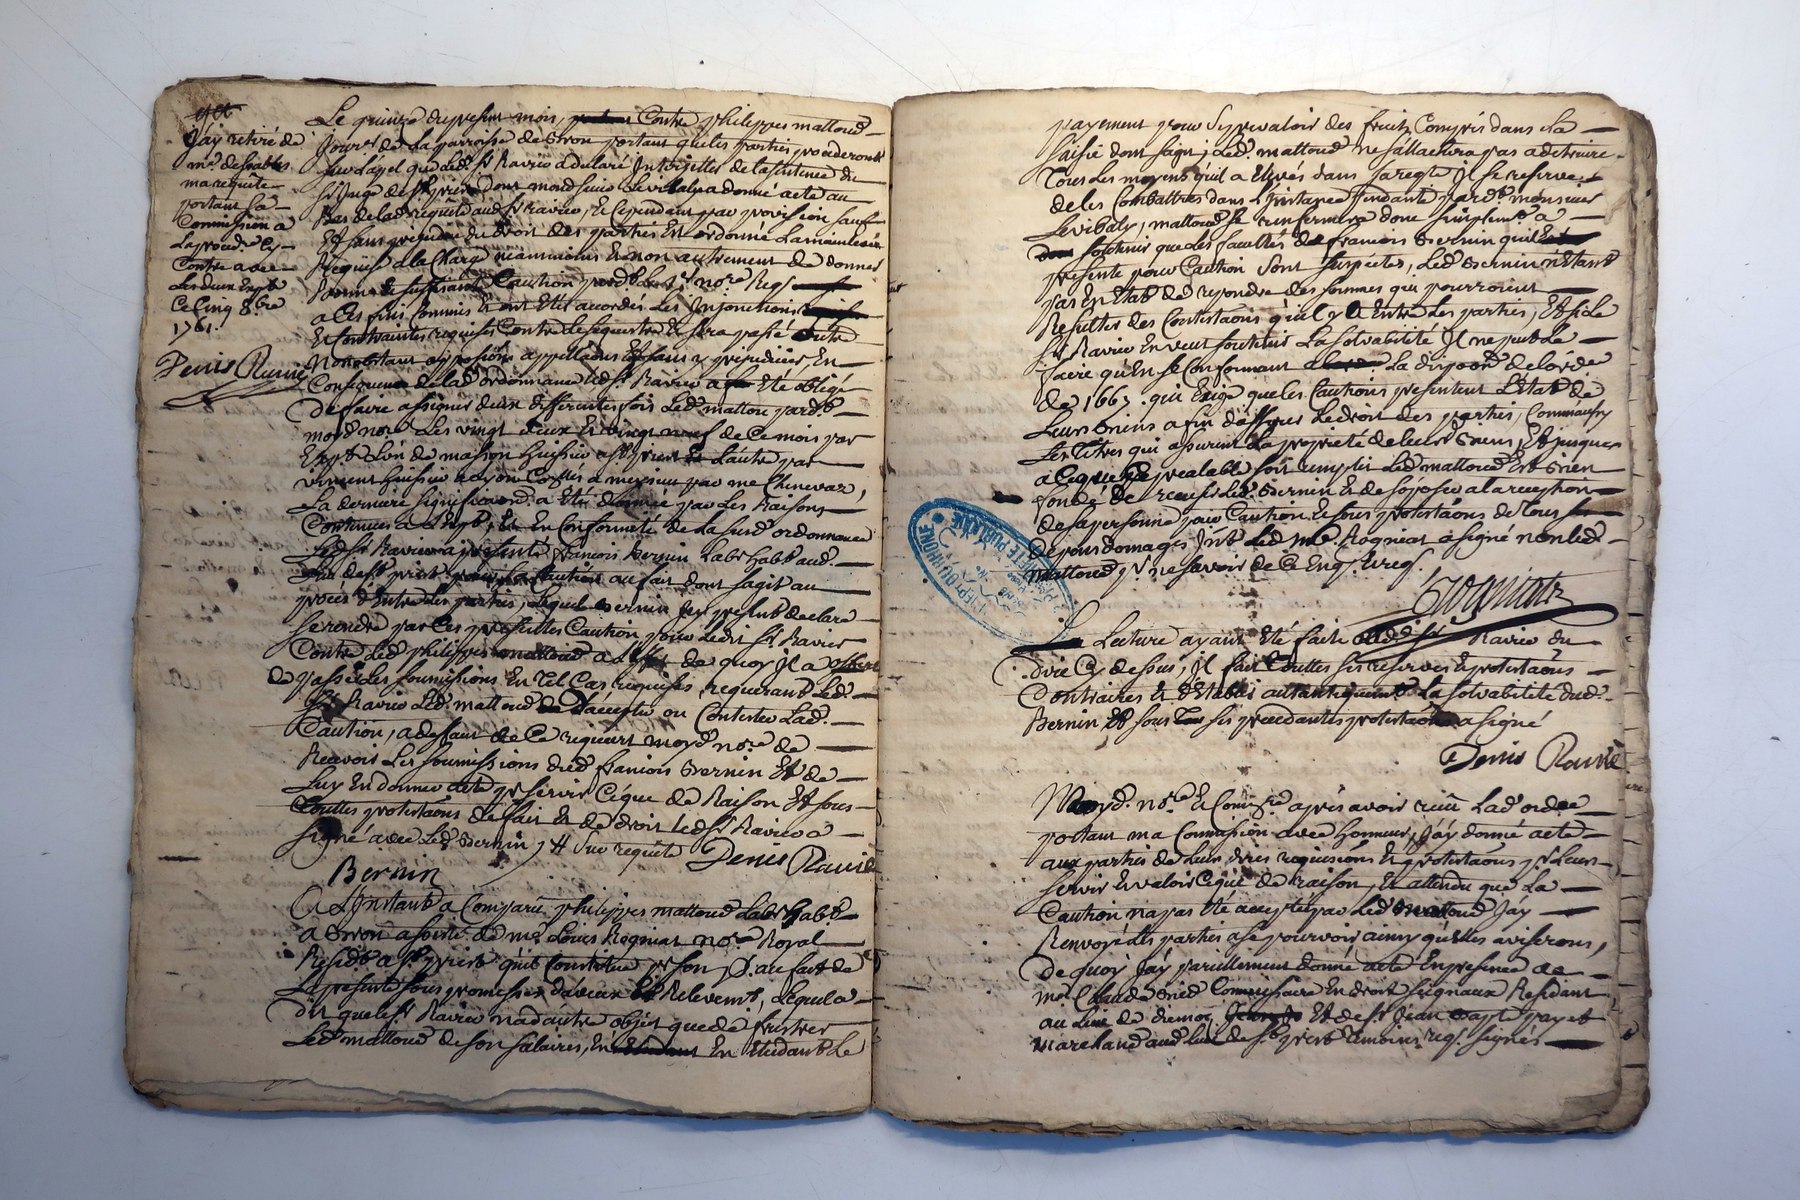 Jay retiré de
me desables
ma requête
portant la
Commission a
La proced. cy
Contre avec
Les deux Expt
Ce Cinq 8.bre
1761.
Denis Ravié
Le quinze du present mois, Contre philippes mattoud
Jour.r de La parroisse de Bron portant que les parties procederont
sur l'apel que led. Sr Ravier a declaré Interjetter de la sentence du
Sr Juge de St priest dont mond sieur Levibaly a donné acte au
Bas de lad. requête aud. Sr ravier, Et Cependant par provision sauf
Et sans prejudice du droit des parties Est ordonné La mainlevée
Requise a la Charge neanmoins Et non autrement de donner
Bonne Et suffisante Caution pard.t Le nore Regl
a Ces fins Commis Et ont Eté accordés Les Injonctions
Et Contraintes requises Contre Le sequestre Et sera passé outre
Nonobstant opposition appellations Et sans y prejudicier, En
Consequence de lad. ordonnance led. Sr Ravier a Eté obligé
De faire assigner deux differentes fois Led. mattoud pard.t
moyd. nore Les vingt deux Et vingt neuf de Ce mois par
Expt Lun de maison huissier a St priest Lautre par
vincent huissier a Lyon Collés a meyzieu par me Chenevaz,
La derniere signification a Eté donnée par Les Raisons
Contenues a L'Expt, Et En Conformité de La susd. ordonnance
Led. Sr Ravier a presenté françois Bernin Labr habt aud.
Lieu de St priest pour sa Caution au fait dont sagit au
proces D'entre Les parties, Lequel Bernin Icy present declare
se rendre par Ces presentes Caution pour Ledit Sr Ravier
Contre Led. philippes mattoud a L'effet de quoy Il a offert
de passer Les soumissions En Tel Cas requises requerant Led.
Sr Ravier Led. mattoud D'accepter ou Contester Lad.
Caution, a deffaut de Ce requiert moyd. nore de
Recevoir Les soumissions dud. françois Bernin Et de
Luy En donner acte pr servir Ce que de Raison Et sous
Touttes protestaons de fait Et de droit led. Sr Ravier a
signé avec Led. Bernin, sur requête Denis Ravié
Bernin
A L'Instant a Comparu philippes mattoud Labr habt
a Bron assisté de me Louis Rogniat nore Royal
Residt a St priest quil Constitue pr son pr. au fait de
La presente sous promesses d'aveux Et Relevemt, Lequel a
dit que le Sr Ravier na d'autre objet que de frustrer
Led. mattoud de son salaires, En En Etudant Le
payement pour se prevaloir des fruits Compris dans La
saisie dont sagit; Led. mattoud ne sattachera pas a detruire
Tous Les moyens quil a Elevés dans sa regte Il se reserve
de les Combattres dans L'Instance Pendante pard.t monsieur
Levibaly, mattoud se renfermera donc simplemt a
soutenir que Les facultés de françois Bernin quil
presente pour Caution sont suspectes, Led. Bernin n'etant
pas En Etat de repondre des sommes qui pourroient
Resulter des Contestaons qu'il y a Entre Les parties, Et si le
Sr Ravier En veut soutenir La solvabilité Il ne peut le
faire qu'En se Conformant a La dispoon de lorde
de 1667. qui Exige que les Cautions presentent L'Etat de
Leurs Biens afin d'assurer Le droit des parties, Comm
Les Titres qui assurent La proprieté de leurs Biens, Et jusques
a Ce que Ce prealable soit rempli Led. mattoud Est Bien
fondé De recuser Led. Bernin Et de soposer a la reception
de sa personne pour Caution Et sous protestaons de Tous
depens domages Intt Led. me Rogniat a signé non led.
mattoud pr ne savoir de Ce Enq. et req.
Rogniat
Lecture ayant Eté faite aud. Sr Ravier du
dire Cy dessus, Il fait Touttes ses reserves Et protestaons
Contraires Et D'Etablir autantiquemt La solvabilité dud.
Bernin Et sous ses precedantes protestaons a signé
Denis Ravié
Moyd. nore Et Commsre après avoir reçu Lad. ordce
portant ma Commission avec honneur, Jay donné acte
aux parties de Leurs dires requisions Et protestaons pr Leur
servir Et valoir Ce que de raison, Et attendu que La
Caution na pas Eté acceptée par Led. mattoud Jay
Renvoyé Les parties a se pourvoir ainsy qu'elles aviserons,
de quoy Jay pareillement donné acte En presence de
me Claude Commissaire En droit seigneaux Residant
au Lieu de Et de Sr Jean Bapt payet
marchand aud. lieu de St priest temoins req. signés